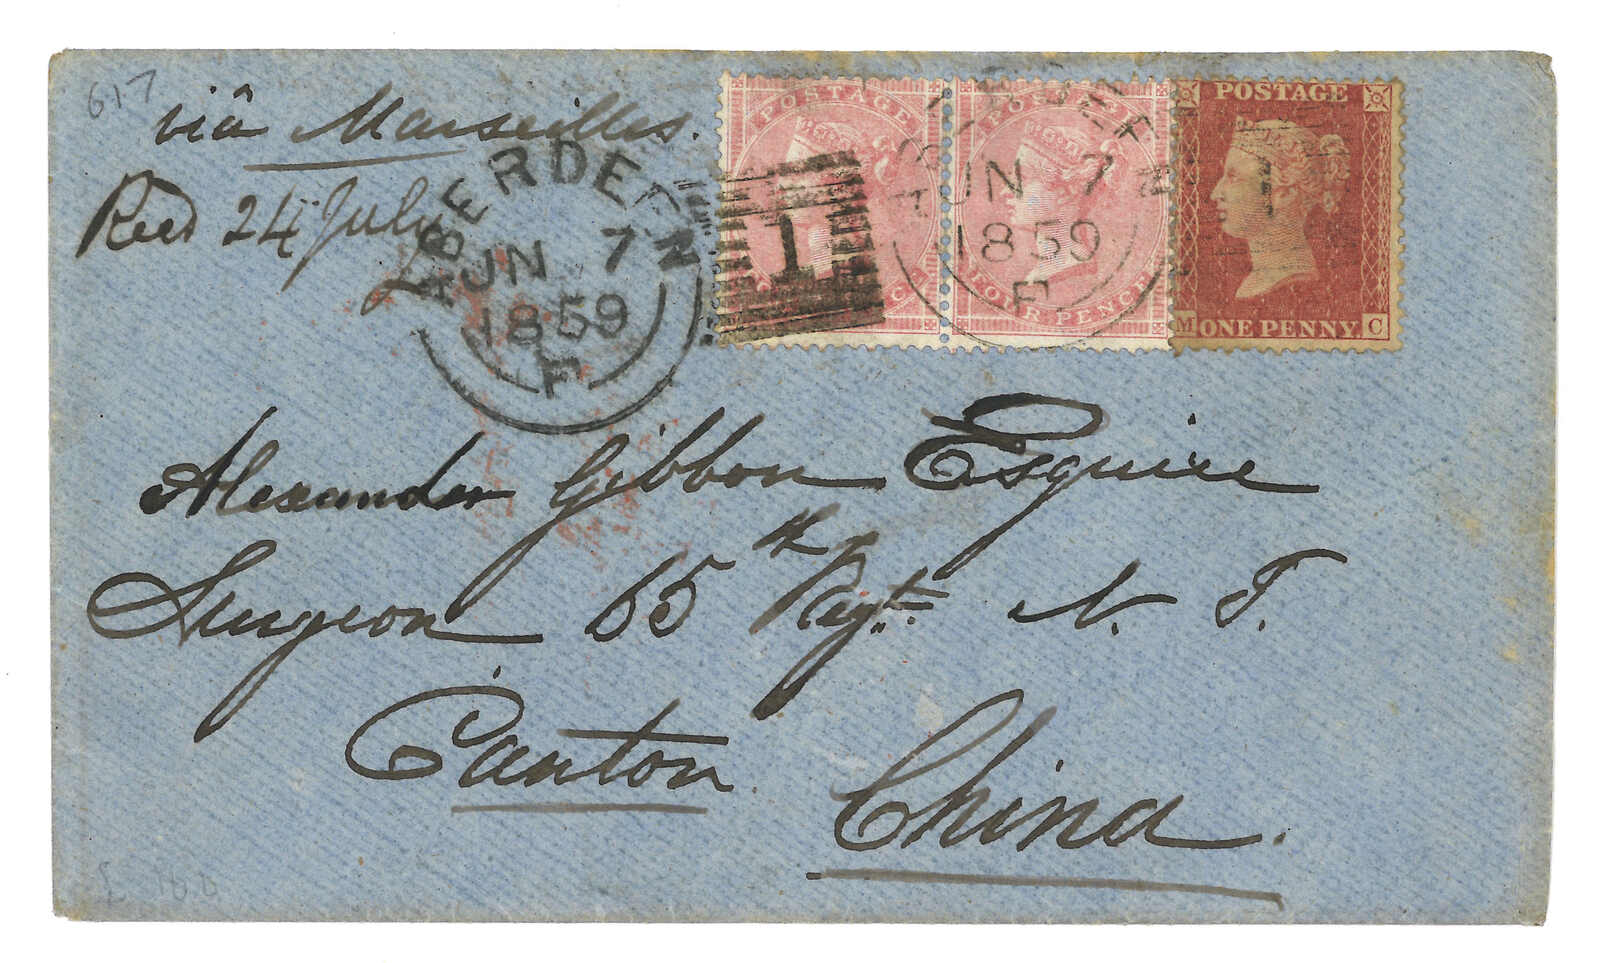 617
viâ Marseilles.
Recd 24 July
ABERDEEN
JUN 7
1859
F
1
POSTAGE
C
ABERDEEN
JUN 7
1859
F
POSTAGE
FOUR PENCE
POSTAGE
1
M ONE PENNY C
Alexander Gibbon Esquire
Surgeon 65th Regt. N. I.
Canton
China.